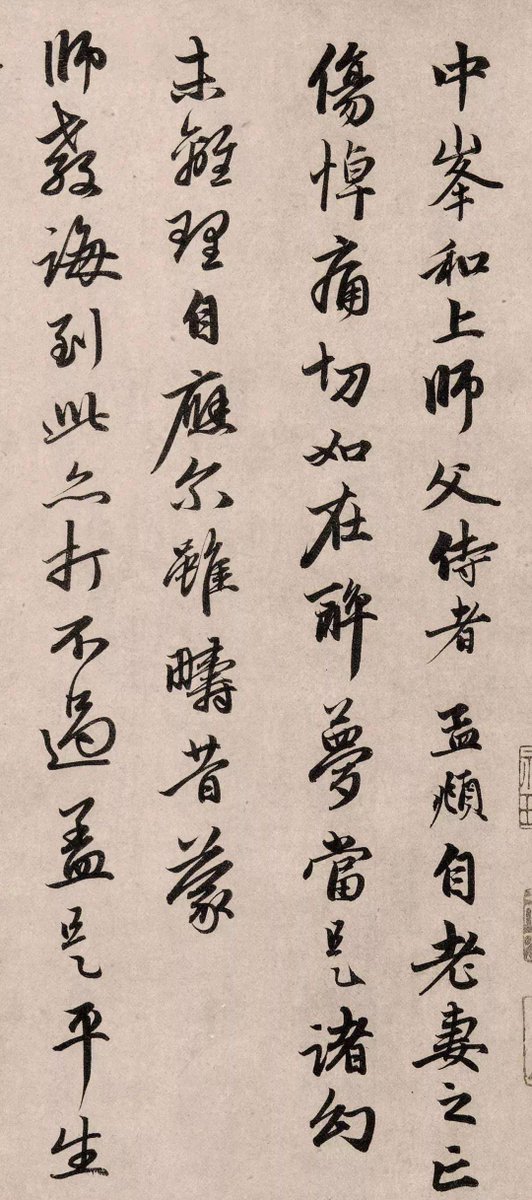 中峯和上師父侍者 孟頫自老妻之亡
傷悼痛切如在醉夢當是諸幻
未離理自應尓雖疇昔蒙
師教誨到此亦打不過盖是平生